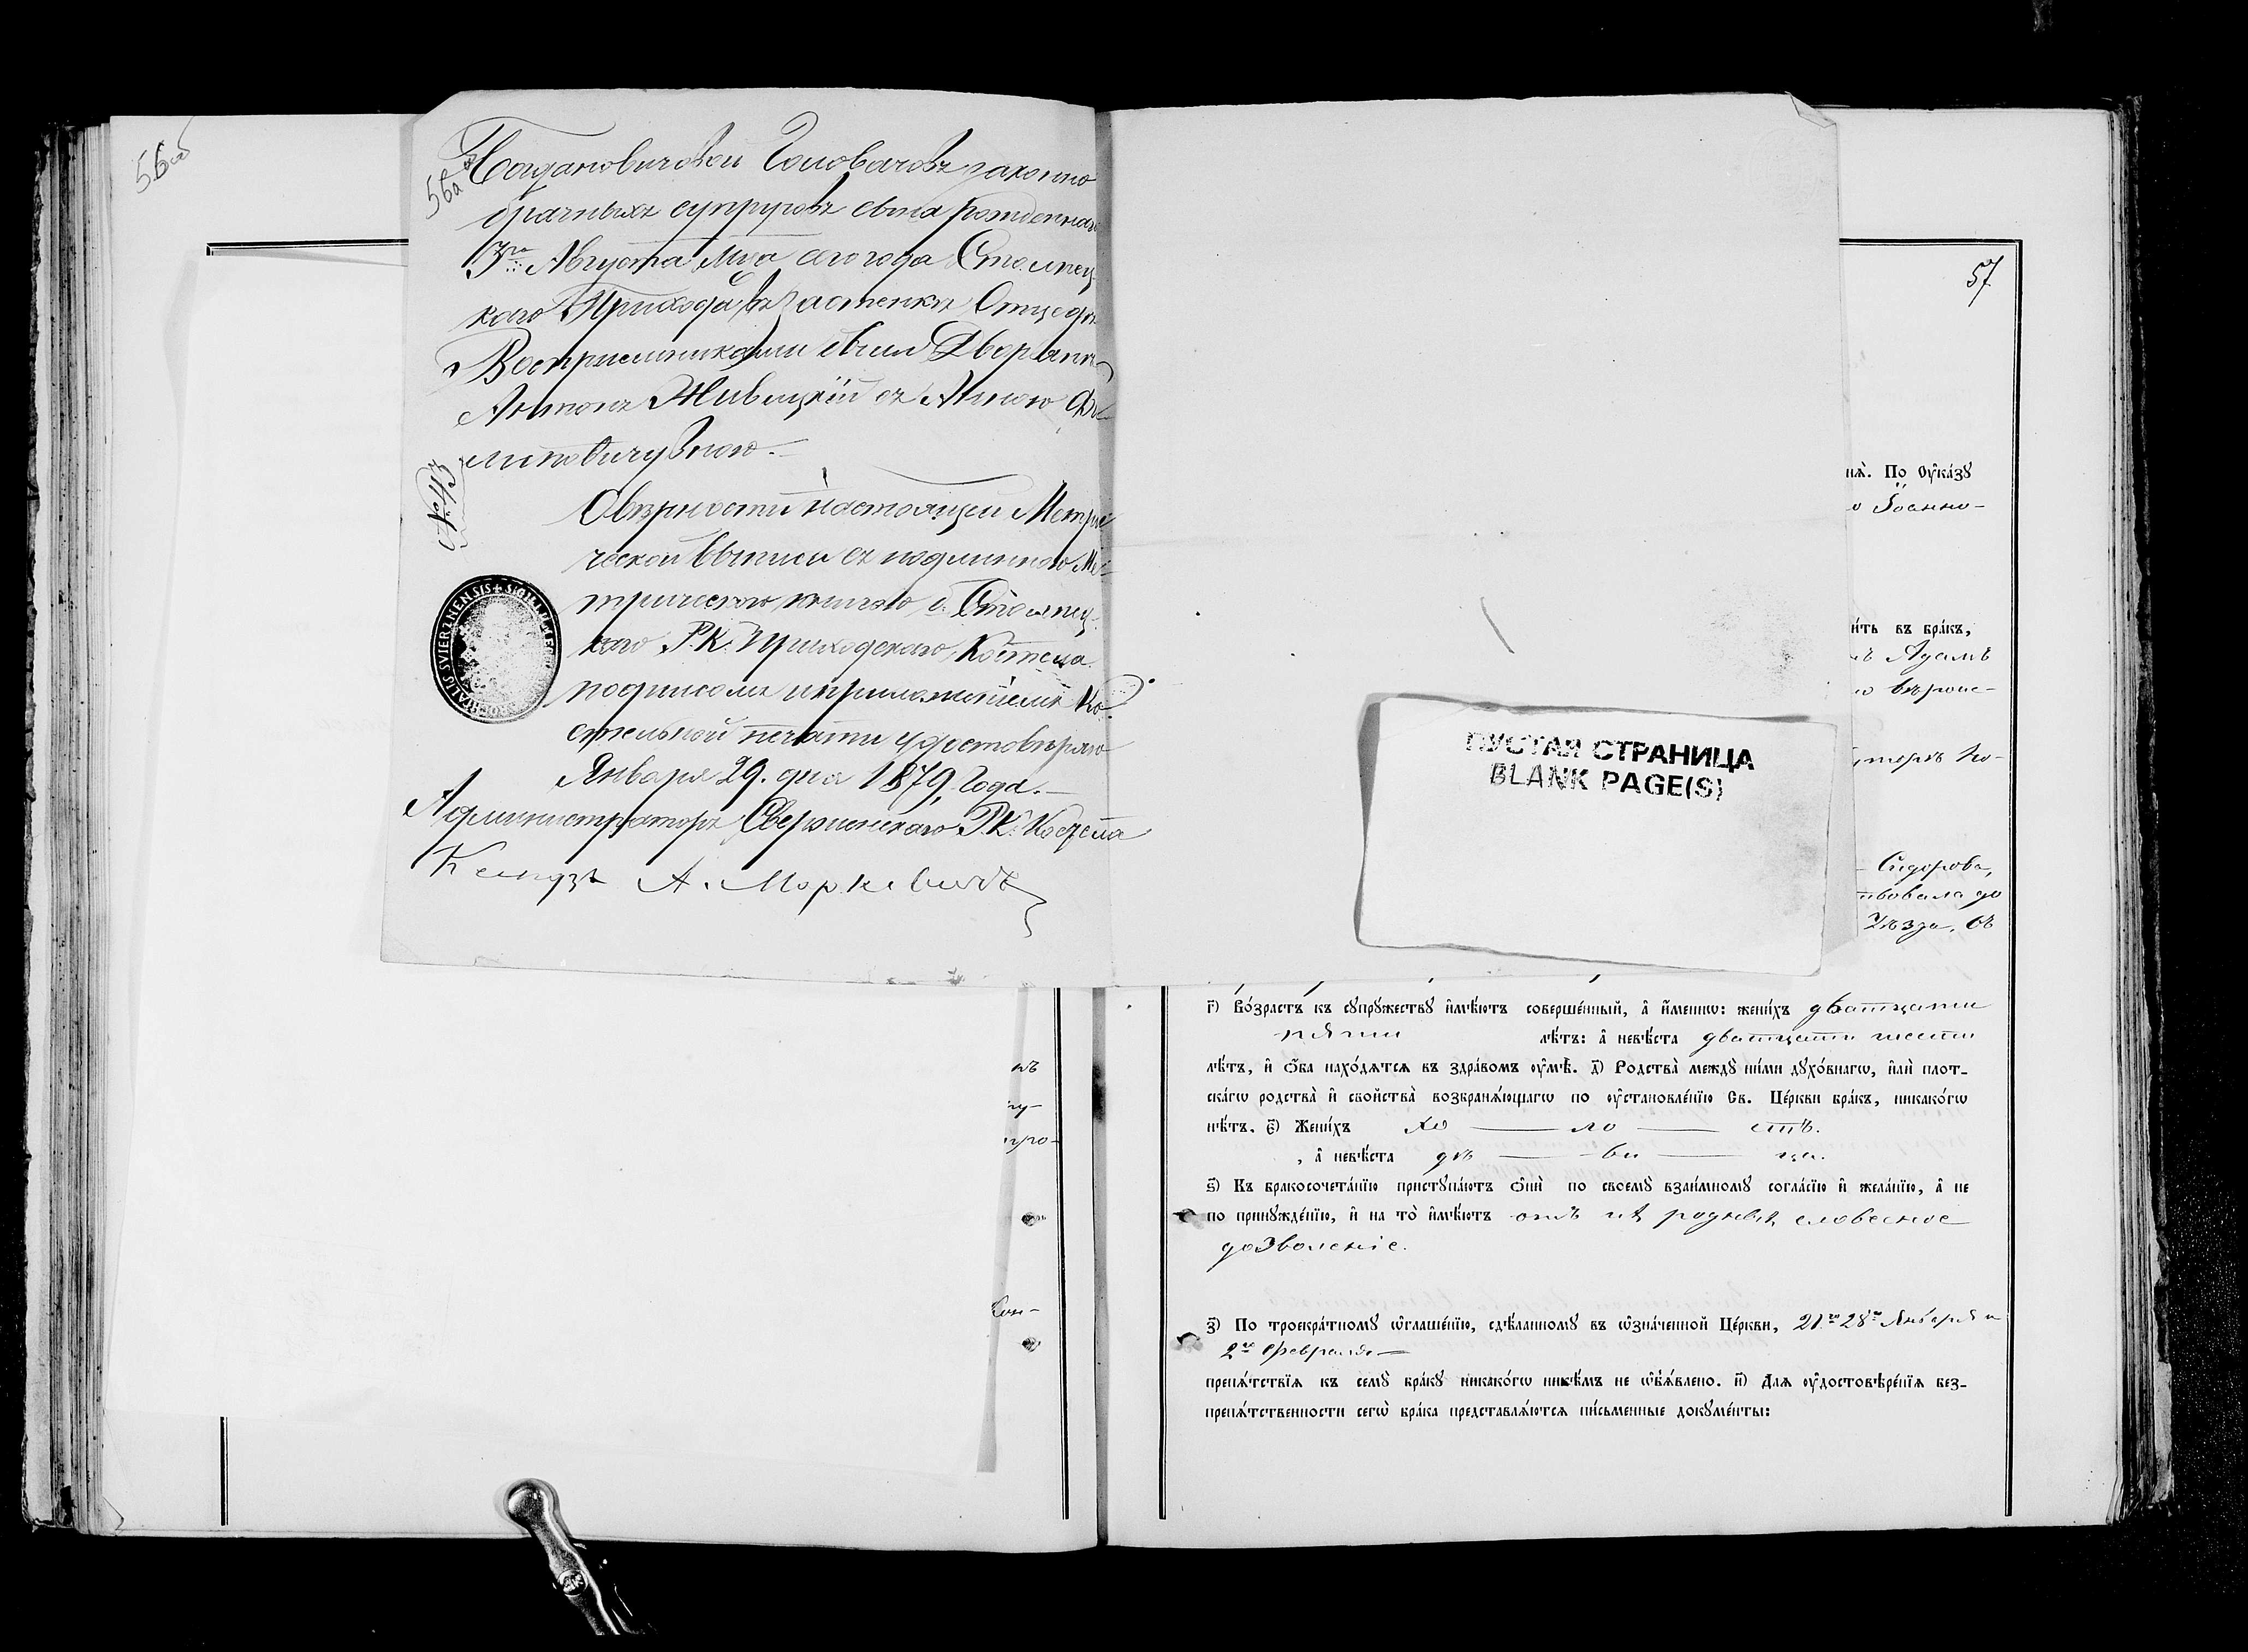 56об
56а об
Богдановичовой Головачовъ законно
брачныхъ супруговъ сына рожденнаго
3го Августа м-ца сего года Столпец-
каго Прихода въ застенкѣ Отцеда
Восприемниками были Дворяне
Антонъ Живицкій съ Анною Фи-
липовичувною.—
Сверности настоящей Метри-
ческой выписи съ подлинною Ме-
трическою книгою Столпец-
каго Р.К. Приходскаго Костела
подписомъ и приложеніемъ Ко-
стельной печати удостовѣряю
Января 29. дня 1879, Года.—
Администраторъ Сверженскаго Р.К. Костела
Ксендзъ А. Маркевичъ
SVIERZNENSIS
нъ
ну-
про-
ПУСТАЯ СТРАНИЦА
BLANK PAGE(S)
57
нѧ̀. По ᲂу҆ка́зꙋ
о Іоанно-
и́ть въ бра́къ,
ъ Адамъ
о вѣроис-
Сидорова,
ствовала до
Уѣзда, съ
г҃) Во́зрастъ къ сꙋпрꙋжествꙋ и҆мѣ́ютъ соверше́нный, а҆ и҆́меннѡ: жени́хъ дватцати
пяти лѣ́тъ: а҆ невѣ́ста дватцати шести
лѣ́тъ, и҆ ѻ҆́ба нахо́дѧтсѧ въ здра́вомъ ᲂу҆мѣ̀. д҃) Родства̀ междꙋ̀ ни́ми дꙋхо́внагѡ, и҆лѝ плот-
ска́гѡ родства̀ и҆ свойства̀ возбранѧ́ющагѡ по ᲂу҆становле́нїю Св. Це́ркви бра́къ, никако́гѡ
нѣ́тъ. є҃) Жени́хъ хо — ло — стъ.
, а҆ невѣ́ста дѣ — ви — ца.
ѕ҃) Къ бракосочета́нїю пристꙋпа́ютъ ѻ҆нѝ по своемꙋ̀ взаи́мномꙋ согла́сїю и҆ жела́нїю, а҆ не
по принꙋжде́нїю, и҆ на то̀ и҆мѣ́ютъ отъ ихъ родныхъ словесное
дозволеніе.
з҃) По троекра́тномꙋ ѡ҆глаше́нїю, сдѣ́ланномꙋ въ ѡ҆зна́ченной Це́ркви, 21го 28го Января и
2го Февраля—
препѧ́тствїѧ къ семꙋ̀ бра́кꙋ никако́гѡ никѣ́мъ не ѡ҆б̾ѧ́влено. и҃) Длѧ ᲂу҆достовѣре́нїѧ без-
препѧ́тственности сегѡ̀ бра́ка представлѧ́ютсѧ пи́сьменные докꙋме́нты: